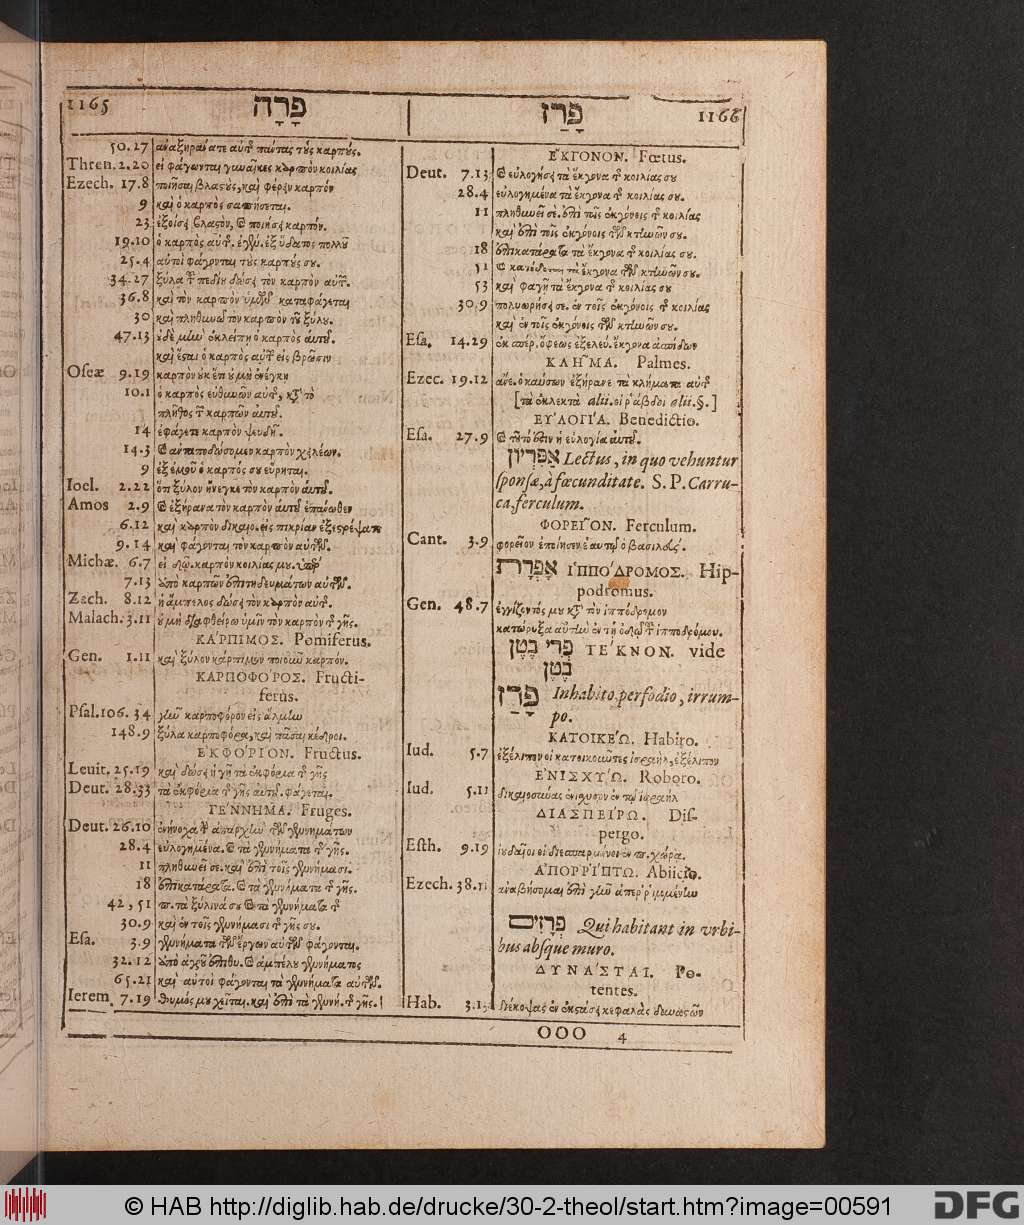 1165 פָּרָה
50.27 ἀναξηρανατε αὐτῆς πάντας τοὺς καρπούς.
Thren. 2.20 εἰ φάγωνται γυναῖκες καρπὸν κοιλίας
Ezech. 17.8 ποιῆσαι βλαστοὺς, καὶ φέρειν καρπόν
9 καὶ ὁ καρπὸς σαπήσεται.
23 ἐξοίσει βλαστὸν, καὶ ποιήσει καρπόν.
19.10 ὁ καρπὸς αὐτῆς. ἐγεν. ἐξ ὕδατος πολλοῦ
25.4 αὐτοὶ φάγονται τοὺς καρπούς σου.
34.27 ξύλα τοῦ πεδίου δώσει τὸν καρπὸν αὐτῶν.
36.8 καὶ τὸν καρπὸν ὑμῶν καταφάγεται
30 καὶ πληθυνῶ τὸν καρπὸν τοῦ ξύλου.
47.13 οὐδὲ μὴ ἐκλείπῃ ὁ καρπὸς αὐτοῦ.
καὶ ἔσται ὁ καρπὸς αὐτῶν εἰς βρῶσιν
Oseæ 9.19 καρπὸν οὐκ ἔτι οὐ μὴ ἐνέγκῃ
10.1 ὁ καρπὸς εὐθηνῶν αὐτῆς, κατὰ τὸ
πλῆθος τῶν καρπῶν αὐτοῦ.
14 ἐφάγετε καρπὸν ψευδῆ.
14.3 καὶ ἀνταποδώσομεν καρπὸν χειλέων.
9 ἐξ ἐμοῦ ὁ καρπός σου εὕρηται.
Ioel. 2.22 ὅτι ξύλον ἤνεγκε τὸν καρπὸν αὐτοῦ.
Amos 2.9 καὶ ἐξήρανα τὸν καρπὸν αὐτοῦ ἐπάνωθεν
6.12 καὶ καρπὸν δικαιο. εἰς πικρίαν ἐξεστρέψατε
9.14 καὶ φάγονται τὸν καρπὸν αὐτῶν.
Michæ. 6.7 εἰ δῶ. καρπὸν κοιλίας μου. ὑπὲρ
7.13 ὑπὸ καρπῶν ἐπιτηδευμάτων αὐτῶν.
Zach. 8.12 ἡ ἄμπελος δώσει τὸν καρπὸν αὐτῆς.
Malach. 3.11 οὐ μὴ διαφθείρω ὑμῖν τὸν καρπὸν τῆς γῆς.
ΚΑΡΠΙΜΟΣ. Pomiferus.
Gen. 1.11 καὶ ξύλον κάρπιμον ποιοῦν καρπόν.
ΚΑΡΠΟΦΟΡΟΣ. Fructi-
ferus.
Psal. 106. 34 γῆν καρποφόρον εἰς ἅλμην
148.9 ξύλα καρποφόρα, καὶ πᾶσαι κέδροι.
ΕΚΦΟΡΙΟΝ. Fructus.
Leuit. 25.19 καὶ δώσει ἡ γῆ τὰ ἐκφόρια τῆς γῆς
Deut. 28.33 τὰ ἐκφόρια τῆς γῆς αὐτοῦ. φάγεται.
ΓΕΝΝΗΜΑ. Fruges.
Deut. 26.10 ἐνήνοχα τὴν ἀπαρχὴν τῶν γεννημάτων
28.4 εὐλογημένα. καὶ τὰ γεννήματα τῆς γῆς.
11 πληθυνεῖ σε. καὶ ἐπὶ τοῖς γεννήμασι.
18 ἐπικατάρατα. καὶ τὰ γεννήματα τῆς γῆς.
42, 51 π. τὰ ξύλινά σου καὶ τὰ γεννήματα τῆς
30.9 καὶ ἐν τοῖς γεννήμασι τῆς γῆς σου.
Esa. 3.9 γεννήματα τῶν ἔργων αὐτῶν φάγονται.
32.12 ὑπὸ ἀγροῦ ἐπιθυ. καὶ ἀμπέλου γεννήματος
65.21 καὶ αὐτοὶ φάγονται τὰ γεννήματα αὐτῶν.
Ierem. 7.19 θυμός μου χεῖται. καὶ ἐπὶ τὰ γεννή. τῆς γῆς.
פָּרַז 1166
ΕΚΓΟΝΟΝ. Fœtus.
Deut. 7.13 καὶ εὐλογήσει τὰ ἔκγονα τῆς κοιλίας σου
28.4 εὐλογημένα τὰ ἔκγονα τῆς κοιλίας σου.
11 πληθυνεῖ σε. ἐπὶ τοῖς ἐκγόνοις τῆς κοιλίας
καὶ ἐπὶ τοῖς ἐκγόνοις τῶν κτηνῶν σου.
18 ἐπικατάρατα τὰ ἔκγονα τῆς κοιλίας σου.
51 καὶ κατέδεται τὰ ἔκγονα τῶν κτηνῶν σου.
53 καὶ φαγῇ τὰ ἔκγονα τῆς κοιλίας σου
30.9 πολυωρήσει σε. ἐν τοῖς ἐκγόνοις τῆς κοιλίας
καὶ ἐν τοῖς ἐκγόνοις τῶν κτηνῶν σου.
Esa. 14.29 ἐκ σπέρ. ὄφεως ἐξελεύ. ἔκγονα ἀσπίδων
ΚΛΗΜΑ. Palmes.
Ezec. 19.12 ἄνε. ὁ καύσων ἐξήρανε τὰ κλήματα αὐτῆς
[τὰ ἐκλεκτὰ alii. εἰ ῥάβδοι alii. §.]
ΕΥΛΟΓΙΑ. Benedictio.
Esa. 27.9 καὶ τοῦτό ἐστιν ἡ εὐλογία αὐτοῦ.
אַפִּרְיוֹן Lectus, in quo vehuntur
sponsæ, à fœcunditate. S. P. Carru-
ca, ferculum.
ΦΟΡΕΙΟΝ. Ferculum.
Cant. 3.9 φορεῖον ἐποίησεν ἑαυτῷ ὁ βασιλεύς.
אֶפְרָת ΙΠΠΟΔΡΟΜΟΣ. Hip-
podromus.
Gen. 48.7 ἐγγίζοντός μου κατὰ τὸν ἱππόδρομον
κατώρυξα αὐτὴν ἐν τῇ ὁδῷ τοῦ ἱπποδρόμου.
פְּרִי בֶטֶן ΤΕΚΝΟΝ. vide
בֶּטֶן
פָּרַז Inhabito perfodio, irrum-
po.
ΚΑΤΟΙΚΕΩ. Habito.
Iud. 5.7 ἐξέλιπον οἱ κατοικοῦντες ἰσραὴλ, ἐξέλιπον
ΕΝΙΣΧΥΩ. Roboro.
Iud. 5.11 δικαιοσύνας ἐνίσχυσον ἐν τῷ ἰσραήλ
ΔΙΑΣΠΕΙΡΩ. Dis-
pergo.
Esth. 9.19 ἰουδαῖοι οἱ διεσπαρμένοι ἐν π. χώρα.
ΑΠΟΡΡΙΠΤΩ. Abiicio.
Ezech. 38.11 ἀναβήσομαι ἐπὶ γῆν ἀπερριμμένην
פְּרָזִים Qui habitant in vrbi-
bus absque muro.
ΔΥΝΑΣΤΑΙ. Po-
tentes.
Hab. 3.13 διέκοψας ἐν ἐκστάσει κεφαλὰς δυναστῶν
OOO 4
© HAB http://diglib.hab.de/drucke/30-2-theol/start.htm?image=00591 DFG